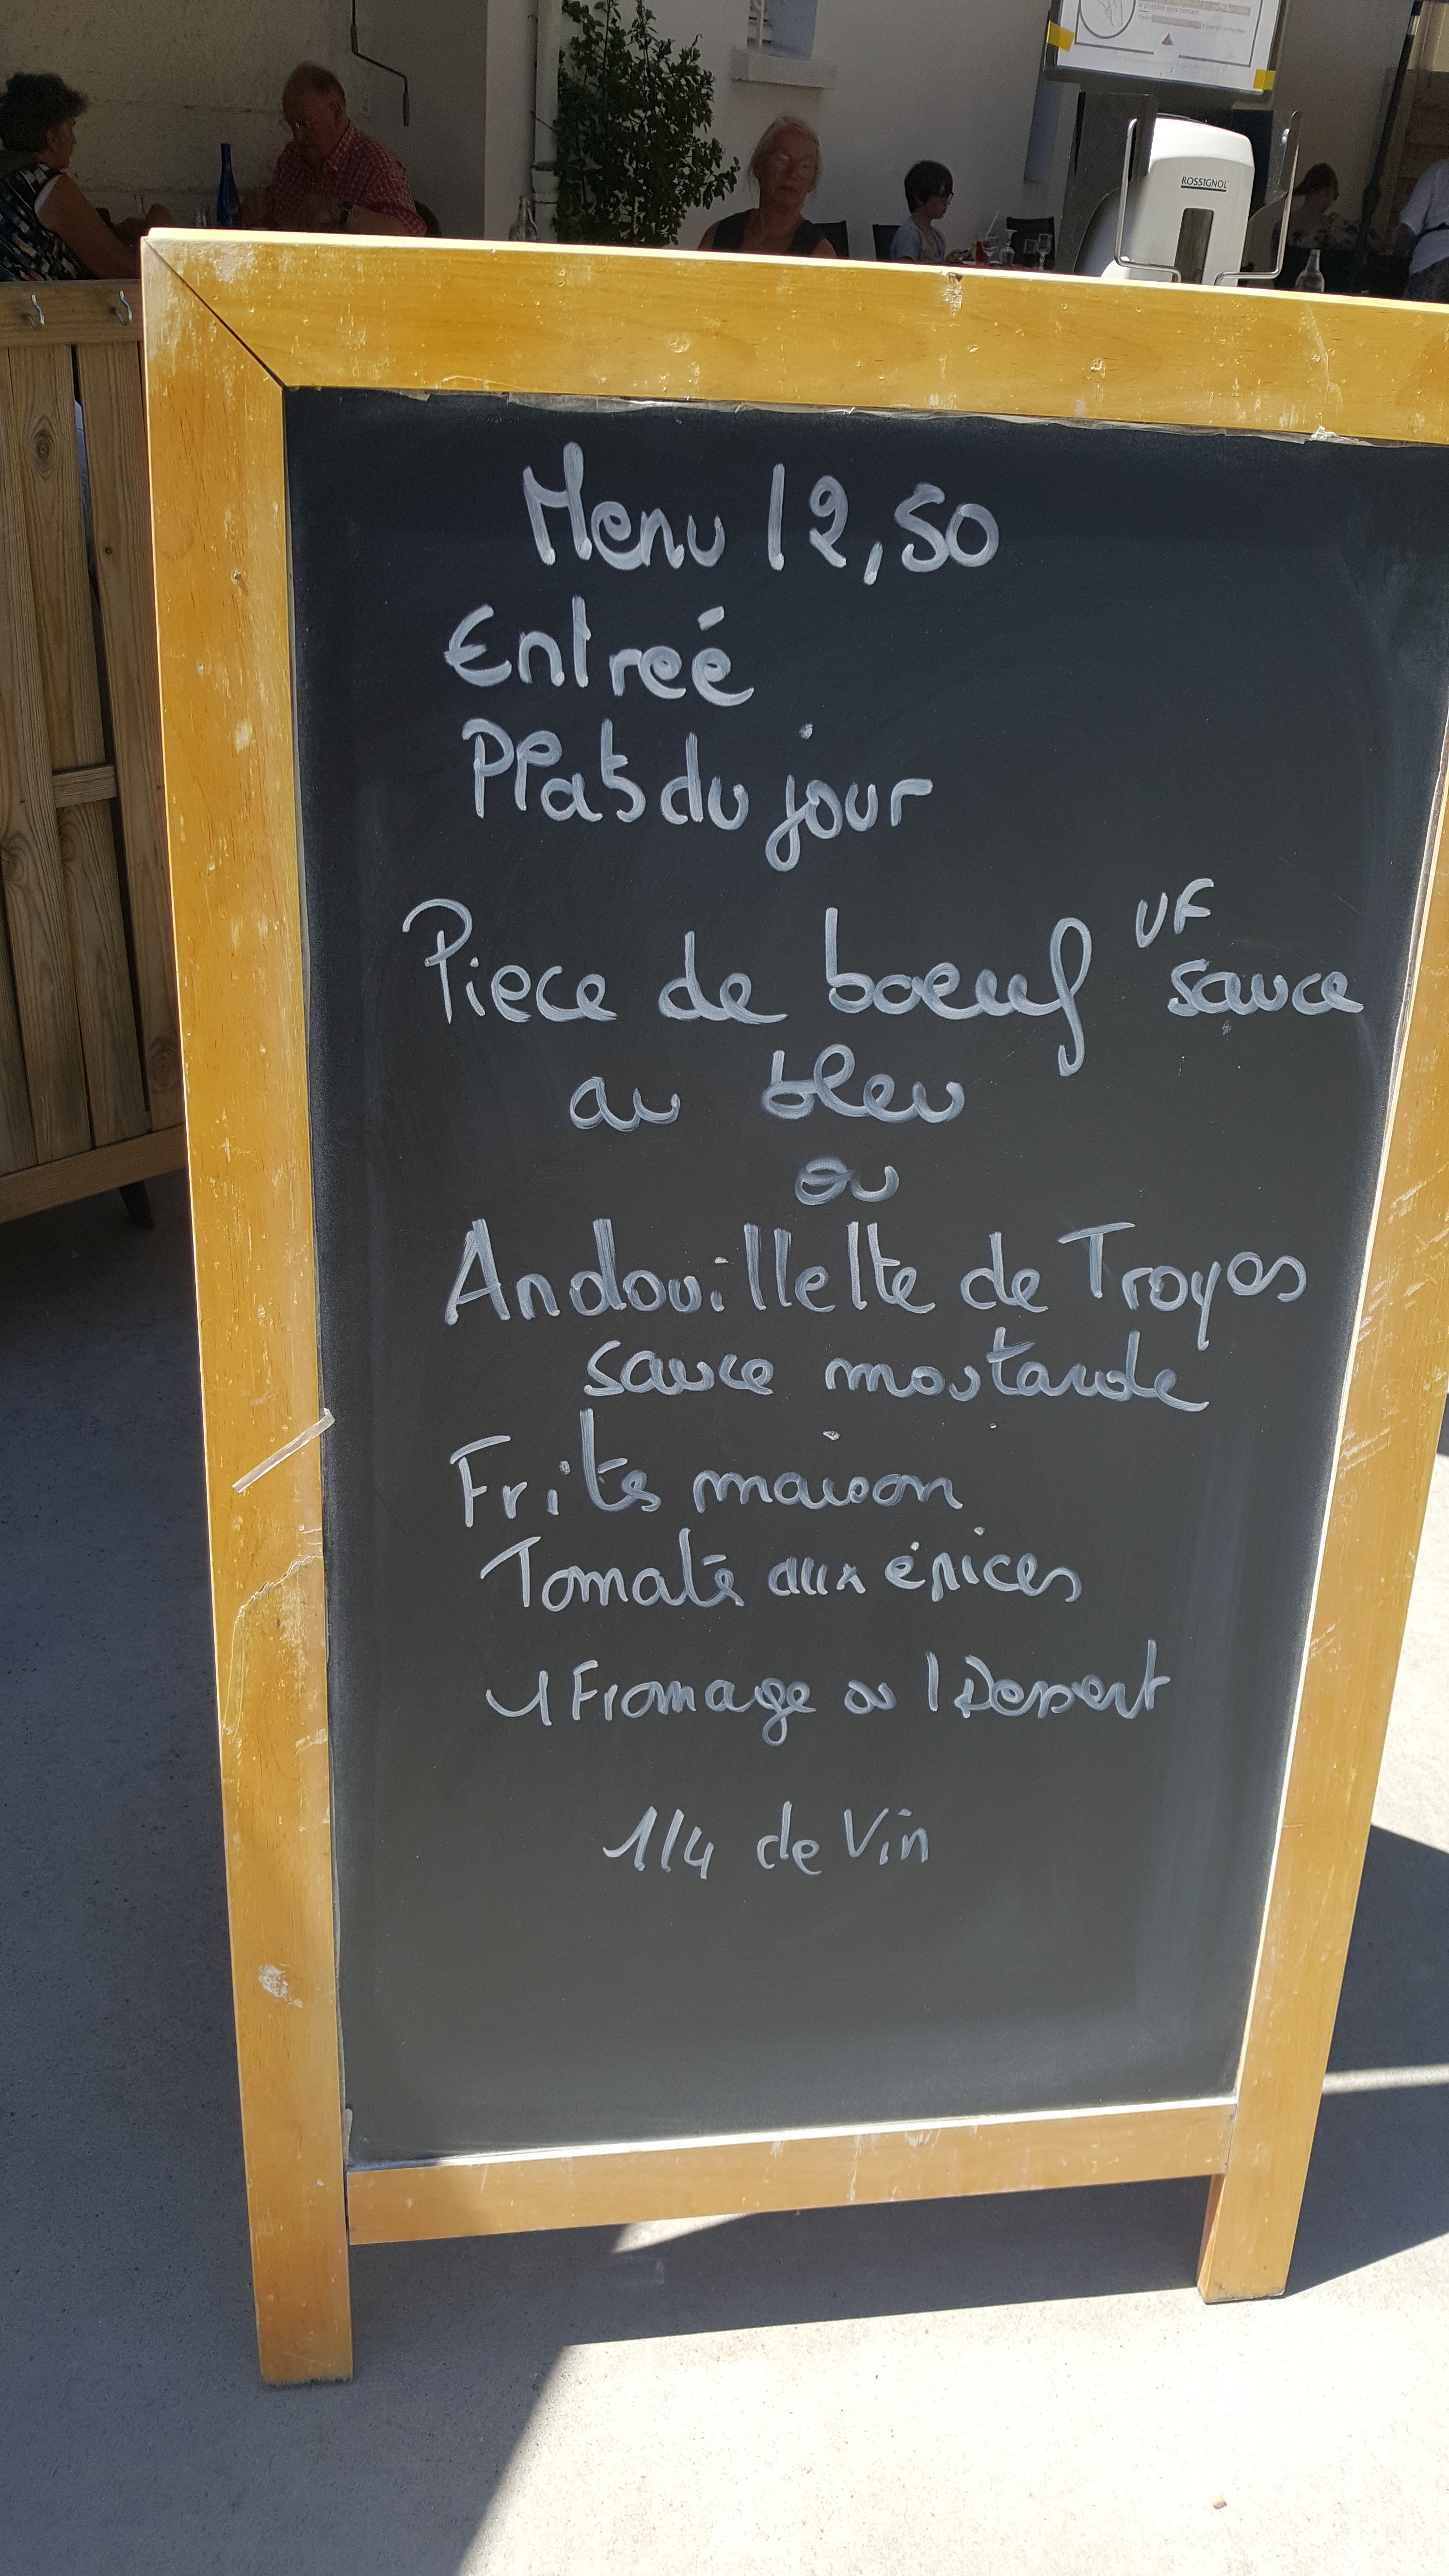 ROSSIGNOL
Menu 12,50
Entreé
Plats du jour
Piece de boeuf VF sauce
au bleu
ou
Andouillette de Troyes
sauce moutarde
Frites maison
Tomate aux épices
1 Fromage ou 1 Dessert
1/4 de Vin